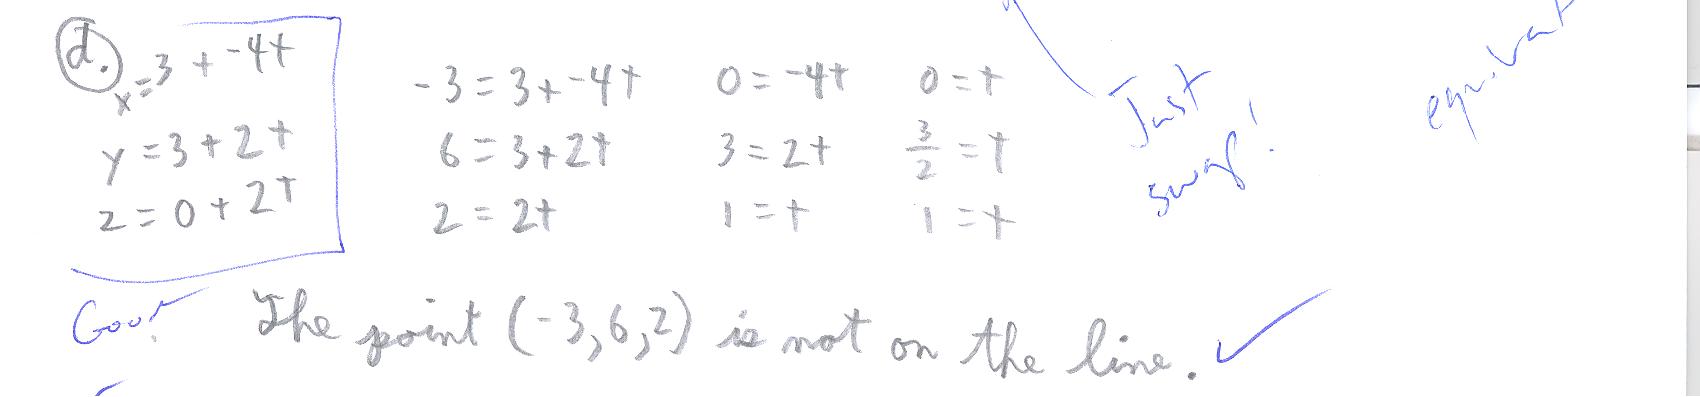 d.
x=3 + -4t
y=3+2t
z=0+2t
-3=3+-4t 0=-4t 0=t
6=3+2t 3=2t 3/2=t
2=2t 1=t 1=t
Just
swap!
Good
The point (-3,6,2) is not on the line. ✓